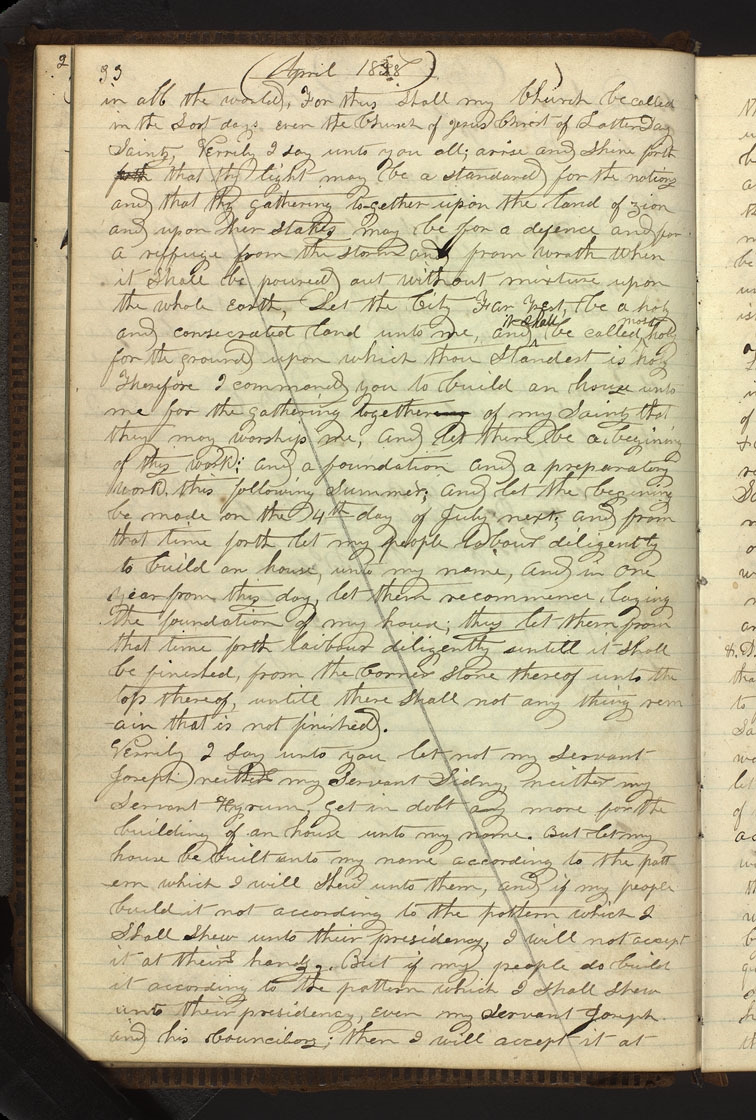 33 (April 1838)
in all the world, For thus shall my Church be called
in the Last days even the Church of Jesus Christ of Latter Day
Saints, Verrily I say unto you all; arise and Shine forth
forth that thy light may be a standard for the nations
and that thy gathering to-gether upon the land of zion
and upon her stakes may be for a defence and for
a reffuge from the storm and from wrath when
it shall be poured out without mixture upon
the whole Earth, Let the City Far West, be a holy
and consecrated land unto me, and it shall be called most holy
for the ground upon which thou standest is holy
Therefore I command you to build an house unto
me for the gathering togethering of my Saints that
they may worship me, and let there be a begining
of this work; and a foundation and a preparatory
work, this following Summer; and let the begining
be made on the 4th day of July next; and from
that time forth let my people labour diligently
to build an house, unto my name, and in one
year from this day, let them recommence laying
the foundation of my house; thus let them from
that time forth laibour diligently untill it shall
be finished, from the Corner Stone thereof unto the
top thereof, untill there shall not any thing rem
-ain that is not finished.
Verrily I say unto you let not my servant
Joseph neither my Servant Sidny, neither my
Servant Hyrum, get in debt any more for the
building of an house unto my name. But let my
house be built unto my name according to the patt
ern which I will shew unto them, and if my people
build it not according to the pattern which I
shall shew unto their presidency, I will not accept
it at theirs hands. But if my people do build
it according to the pattern which I shall shew
unto their presidency, even my servant Joseph
and his Councilors; then I will accept it at